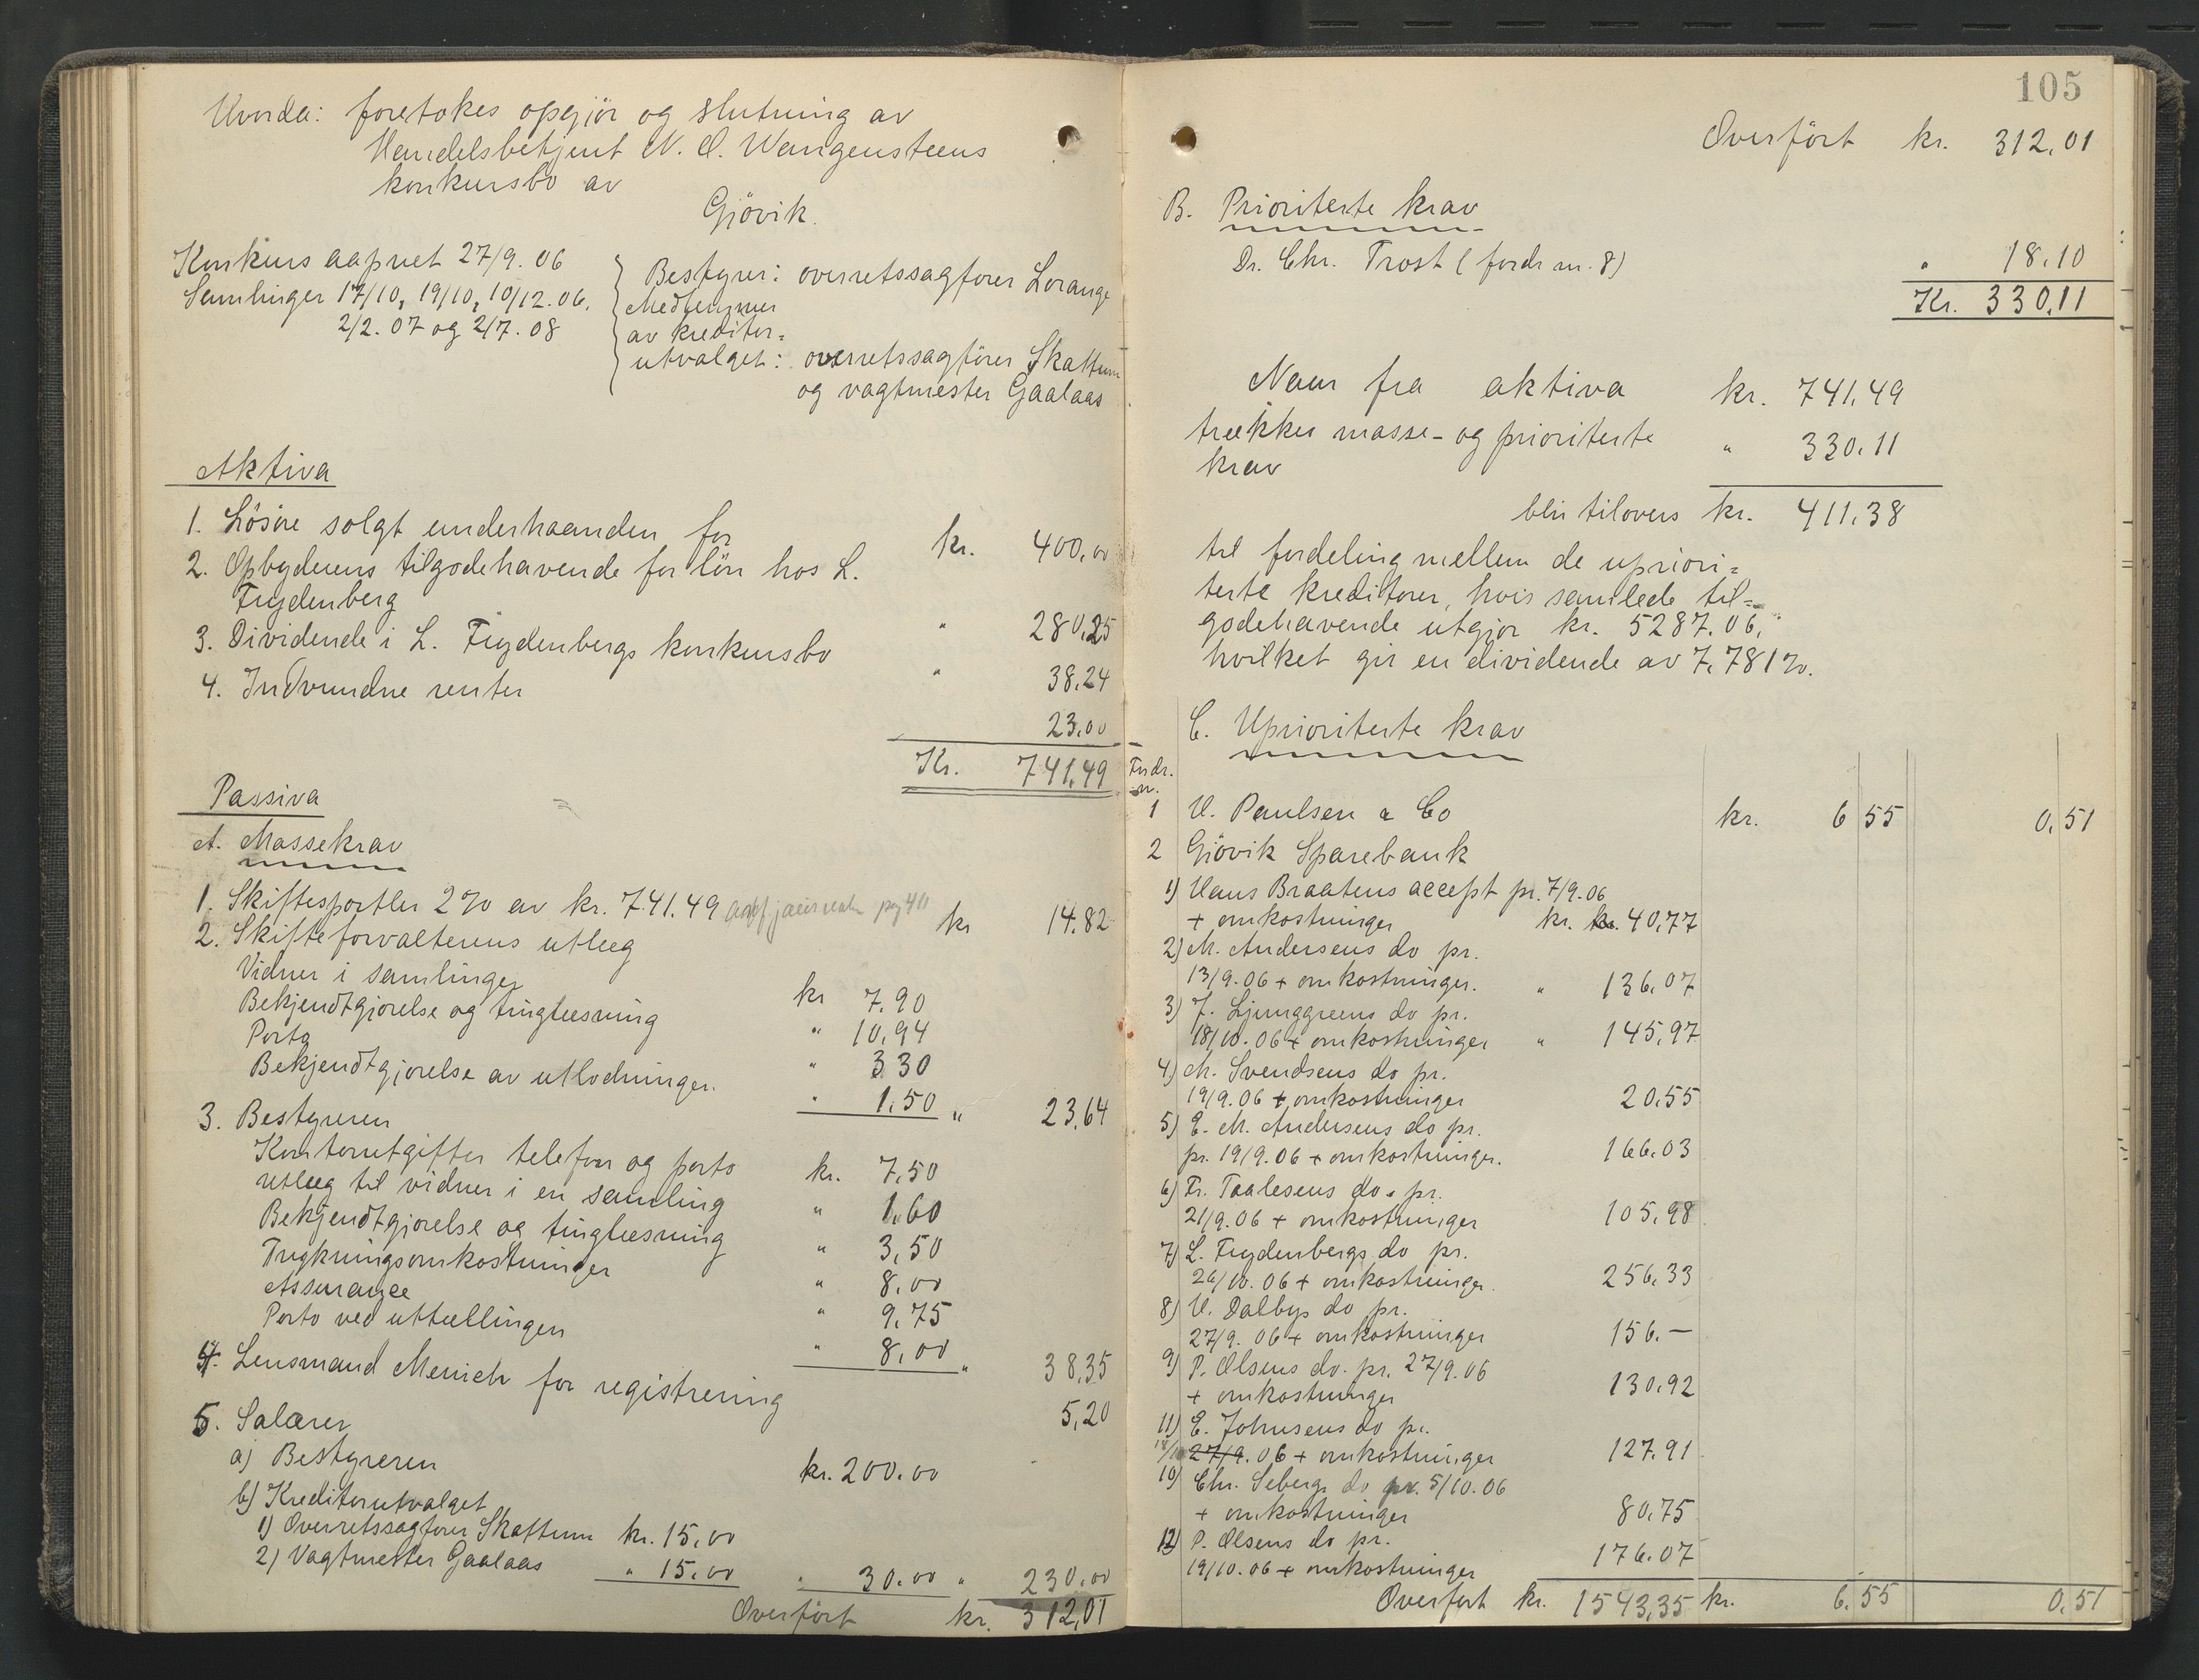 Hvorda: foretokes opgjör og slutning av
Handelsbetjent N. O. Wangensteens
konkursbo av
Gjövik.
Konkurs aapnet 27/9. 06
Samlinger 17/10, 19/10, 10/12. 06.
2/2. 07 og 2/7. 08
Bestyrer: overretssagfører Lorange
Medlemmer
av kreditor=
utvalget: overretssagförer Skattum
og vagtmester Gaalaas
Aktiva
1. Lösöre solgt underhaanden for kr. 400.00
2. Opbyderens tilgodehavende for lön hos L.
Frydenberg " 280,25
3. Dividende i L. Frydenbergs konkursbo " 38.24
4. Indvundne renter 23.00
Kr. 741.49
Passiva
A. Massekrav
1. Skiftesportler 2% av kr. 741.49 kr 14.82
2. Skifteforvalterens utlæg
Vidner i samlinger kr 7.90
Bekjendtgjørelse og tinglæsning " 10,94
Porto " 3 30
Bekjendtgjørelse av utlodningen. " 1.50 " 23,64
3. Bestyreren
Kontorutgifter telefon og porto kr. 7,50
utlæg til vidner i en samling " 1.60
Bekjendtgjørelse og tinglæsning " 3,50
Trykningsomkostninger " 8,00
Assurance " 9,75
Porto ved uttællingen " 8,00 " 38,35
4. Lensmand Menich for registrering 5,20
5. Salærer
a) Bestyreren kr. 200.00
b) Kreditorutvalget
1) Overretssagfører Skattum kr. 15,00
2) Vagtmester Gaalaas " 15.00 " 30.00 " 230.00
Overfört kr. 312,01
105
Overfört kr. 312.01
B. Prioriterte krav
Dr. Chr. Trost (fordr nr. 8) " 18.10
Kr. 330,11
Naar fra aktiva kr. 741.49
trækkes masse- og prioriterte " 330.11
krav
blir tilovers kr. 411.38
til fordeling mellem de upriori=
terte kreditorer, hvis samlede til=
godehavende utgjør kr. 5287.06,
hvilket gir en dividende av 7.781%.
C. Uprioriterte krav
Fordr.
nr.
1 V. Paulsen & Co kr. 6 55 0,51
2 Gjövik Sparebank
1) Hans Braatens accept pr. 7/9.06
+ omkostninger kr. 40,77
2) M. Andersens do pr.
13/9.06 + omkostninger. " 136,07
3) J. Ljunggreens do pr.
18/10.06 + omkostninger " 145,97
4) M. Svendsens do pr.
19/9.06 + omkostninger 20.55
5) E. M. Andersens do pr.
pr. 19/9.06 + omkostninger. 166.03
6) Fr. Taalesens do. pr.
21/9.06 + omkostninger 105,98
7) L. Frydenbergs do pr.
26/10.06 + omkostninger. 256,33
8) V. Dalbys do pr.
27/9. 06 + omkostninger 156.—
9) P. Olsens do. pr. 27/9.06
+ omkostninger 130.92
11) E. Johnsens do pr.
18/10 27/9.06 + omkostninger 127.91
10) Chr. Sebergs do pr. 5/10.06
+ omkostninger 80,75
12) P. Olsens do pr.
19/10.06 + omkostninger 176.07
Overfört kr. 1543,35 kr. 6,55 0,51